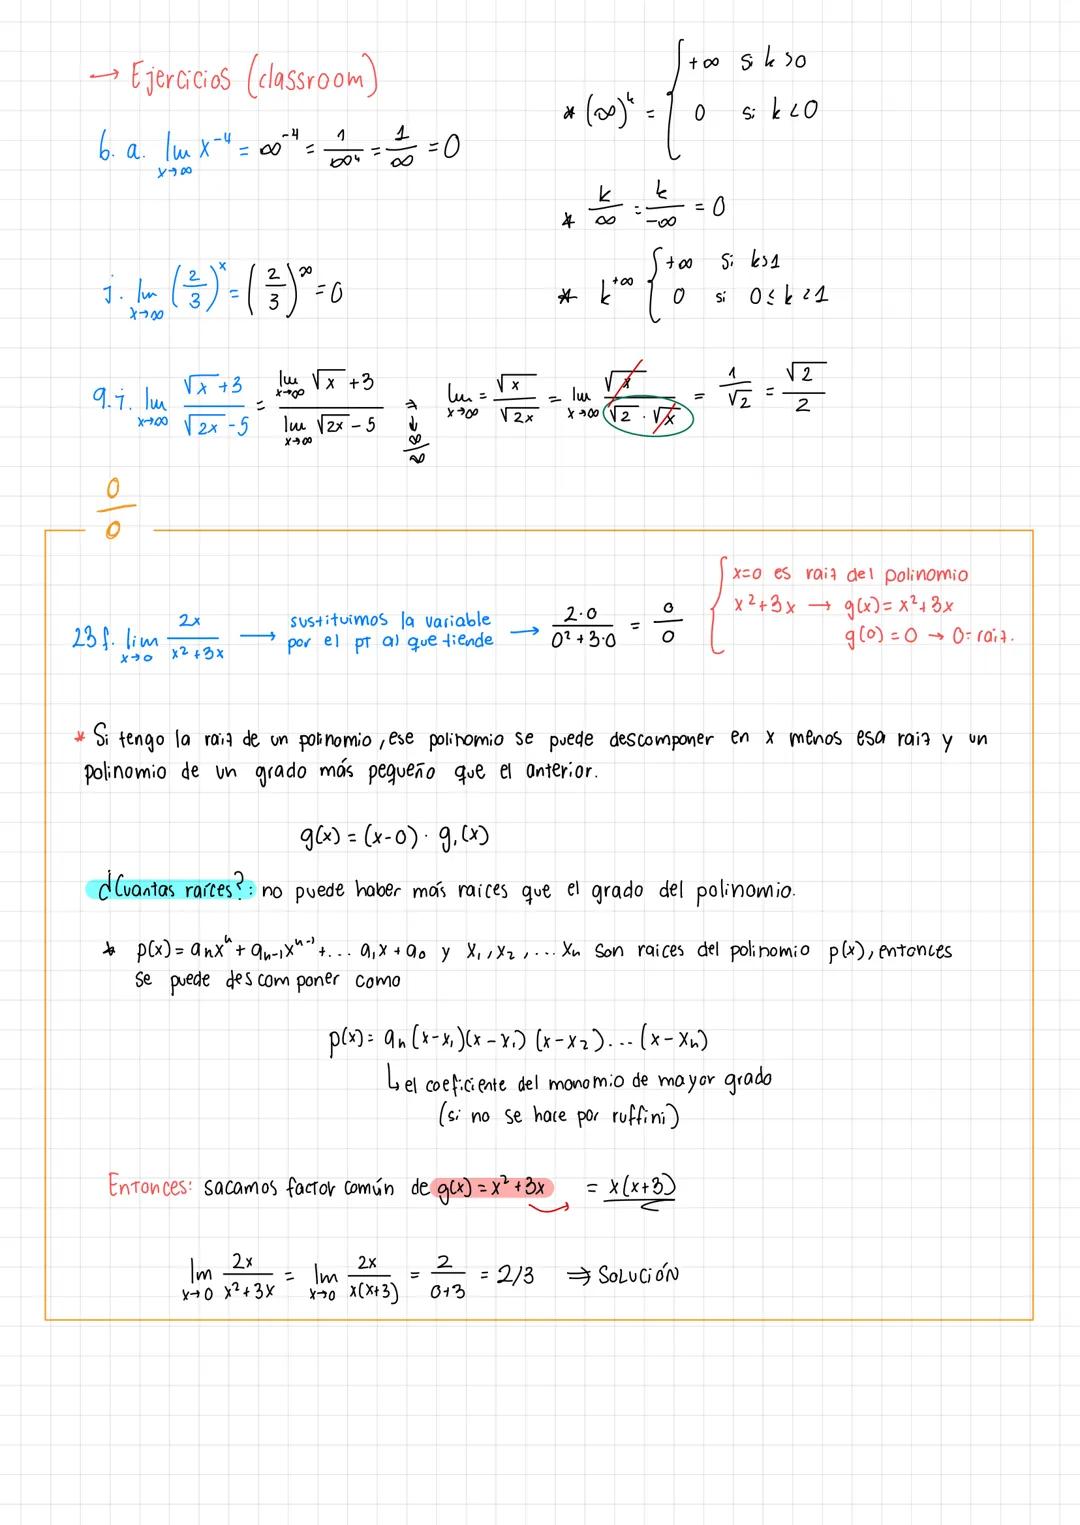 → Ejercicios (classroom)
* (∞)ᵏ = { +∞ si k>0
0 si k<0
6. a. lim x→∞ x⁻⁴ = ∞⁻⁴ = 1/∞⁴ = 1/∞ = 0
* k/∞ = k/-∞ = 0
j. lim x→∞ (2/3)ˣ = (2/3)^∞ = 0
* k^+∞ { +∞ si k>1
0 si 0≤k<1
9. i. lim x→∞ (√x+3)/(√2x-5) = (lim x→∞ √x+3)/(lim x→∞ √2x-5) → ∞/∞ lim x→∞ = √x/√2x = lim x→∞ √x/(√2·√x) = 1/√2 = √2/2
0/0
23 f. lim x→0 2x/(x²+3x) → sustituimos la variable por el pt al que tiende → 2·0/(0²+3·0) = 0/0
{ x=0 es raiz del polinomio
x²+3x → g(x)= x²+3x
g(0)=0 → 0=raiz.
* Si tengo la raiz de un polinomio, ese polinomio se puede descomponer en x menos esa raiz y un
polinomio de un grado más pequeño que el anterior.
g(x) = (x-0) · g₁(x)
¿Cuantas raíces?: no puede haber más raices que el grado del polinomio.
* p(x)= aₙxⁿ + aₙ₋₁xⁿ⁻¹ +... a₁x + a₀ y x₁, x₂, ... xₙ son raices del polinomio p(x), entonces
se puede descomponer como
p(x)= aₙ (x-x₁)(x-x₁) (x-x₂)... (x-xₙ)
↳ el coeficiente del monomio de mayor grado
(si no se hace por ruffini)
Entonces: sacamos factor común de g(x) = x²+3x = x(x+3)
lim x→0 2x/(x²+3x) = lim x→0 2x/(x(x+3)) = 2/(0+3) = 2/3 ⇒ SOLUCIÓN